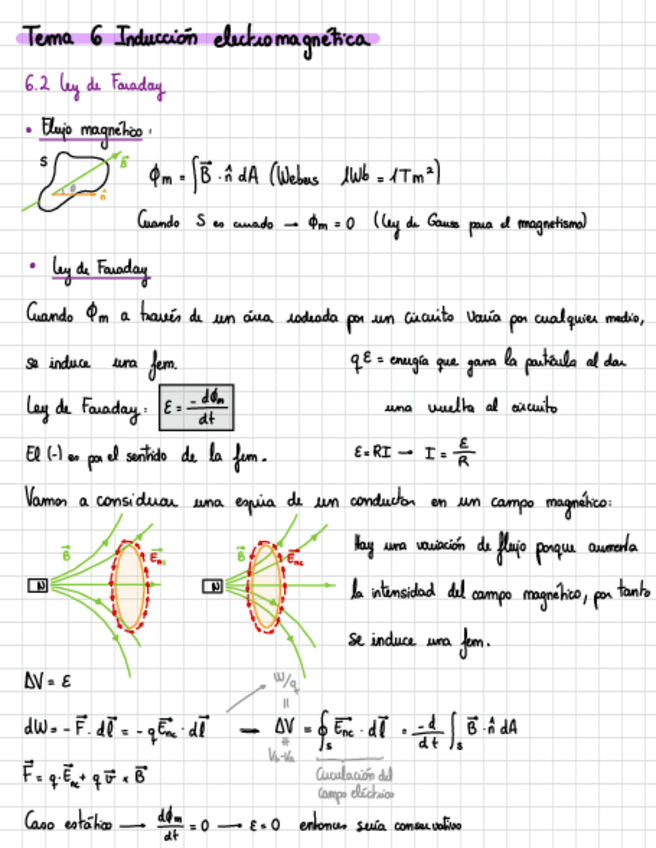 Tema 6 Inducción electromagnética
6.2 Ley de Faraday
• Flujo magnético:
S B⃗ θ n̂
ϕm = ∫ B⃗ · n̂ dA (Webers 1Wb = 1Tm²)
Cuando S es cerrado → ϕm = 0 (Ley de Gauss para el magnetismo)
• Ley de Faraday
Cuando ϕm a través de un área rodeada por un circuito varía por cualquier medio,
se induce una fem.
qε = energía que gana la partícula al dar
una vuelta al circuito
Ley de Faraday: ε = -dϕm/dt
El (-) es por el sentido de la fem.
ε = RI → I = ε/R
Vamos a considerar una espira de un conductor en un campo magnético:
N B⃗ E⃗nc
N B⃗ E⃗nc
Hay una variación de flujo porque aumenta
la intensidad del campo magnético, por tanto
se induce una fem.
ΔV = ε
W/q
=
dW = - F⃗ · dl⃗ = - qE⃗nc · dl⃗ → ΔV = ∮s E⃗nc · dl⃗ = -d/dt ∫s B⃗ · n̂ dA
Circulación del
campo eléctrico
F⃗ = q · E⃗nc + q v⃗ × B⃗
Caso estático → dϕm/dt = 0 → ε = 0 entonces sería conservativo